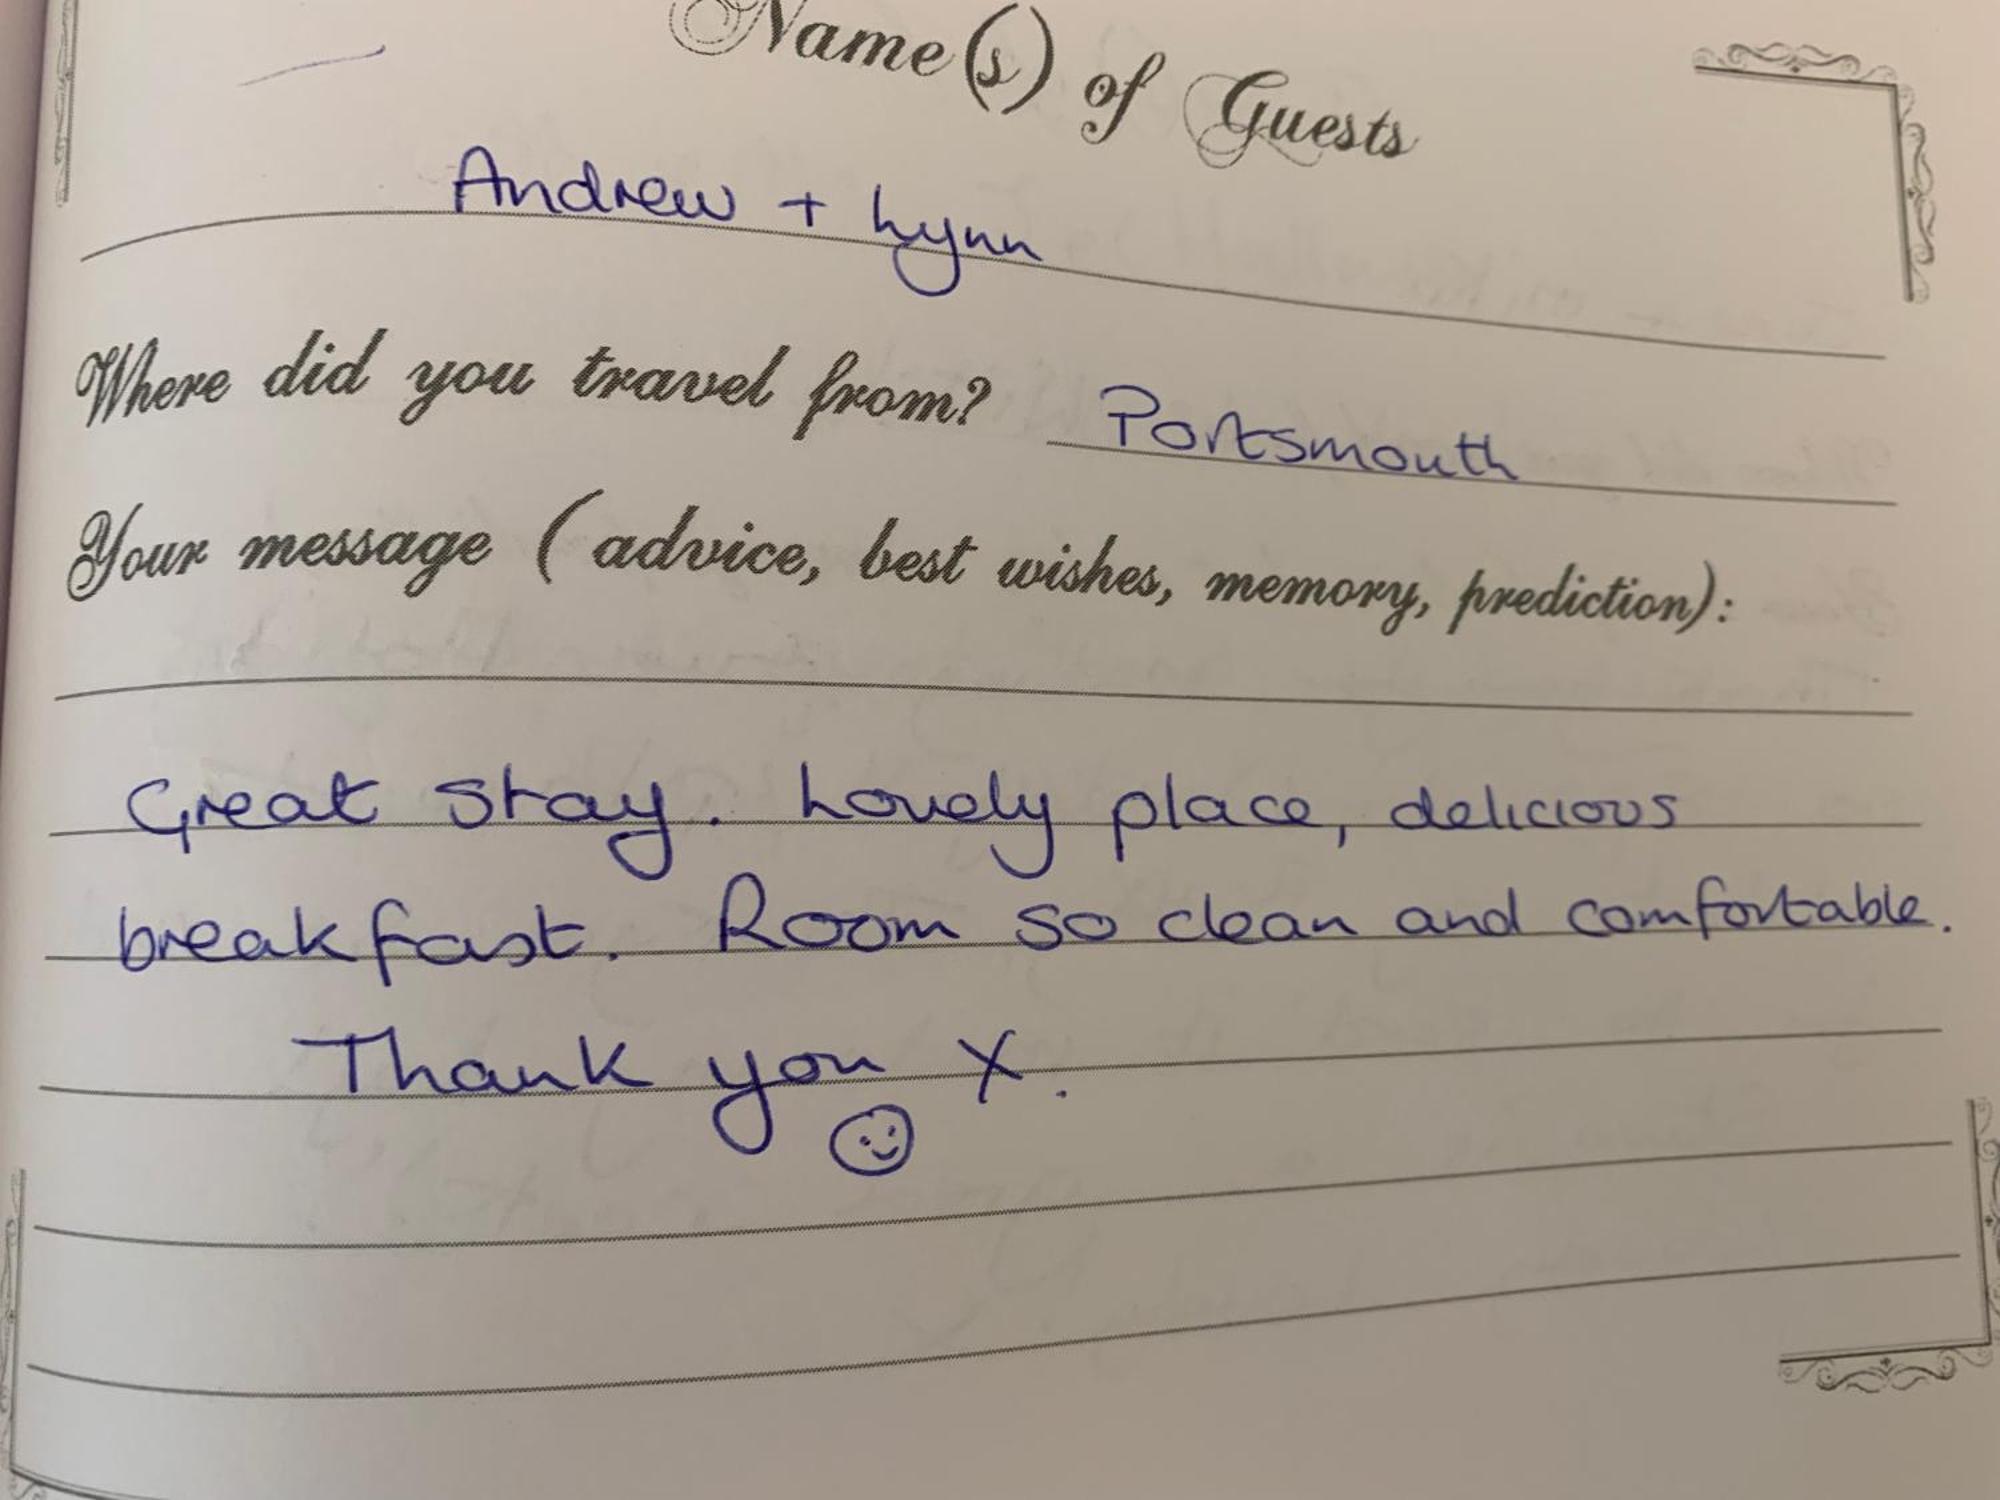 Name(s) of Guests
Andrew + Lynn
Where did you travel from? Portsmouth
Your message ( advice, best wishes, memory, prediction):
Great stay. Lovely place, delicious
breakfast. Room so clean and comfortable.
Thank you X.